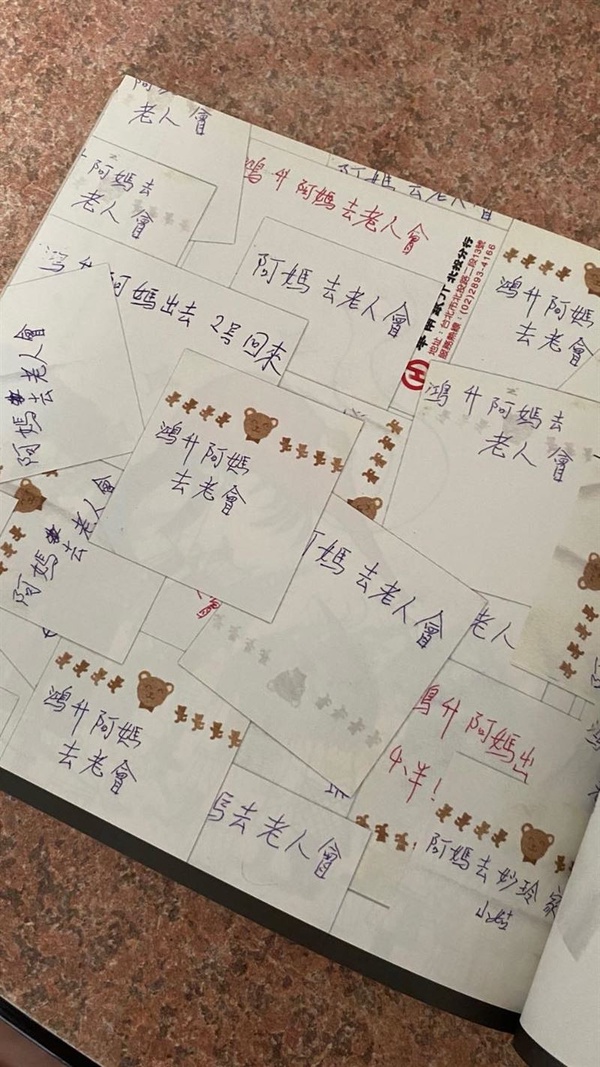 阿
老人會
阿媽去
老人會
鴻升阿媽去老人會
阿媽去老人會
阿媽去老人會
鴻升阿媽
去老人會
地址：台北市北投路二段13號
服務熱線：(02)2893-4166
阿媽出去 2号回來
鴻升阿媽去
老人會
阿媽去老人會
鴻升阿媽
去老會
阿媽去老人會
媽去老人會
老人
鴻升阿媽
去老會
升阿媽出
阿媽去妙玲家
小姑
去老人會